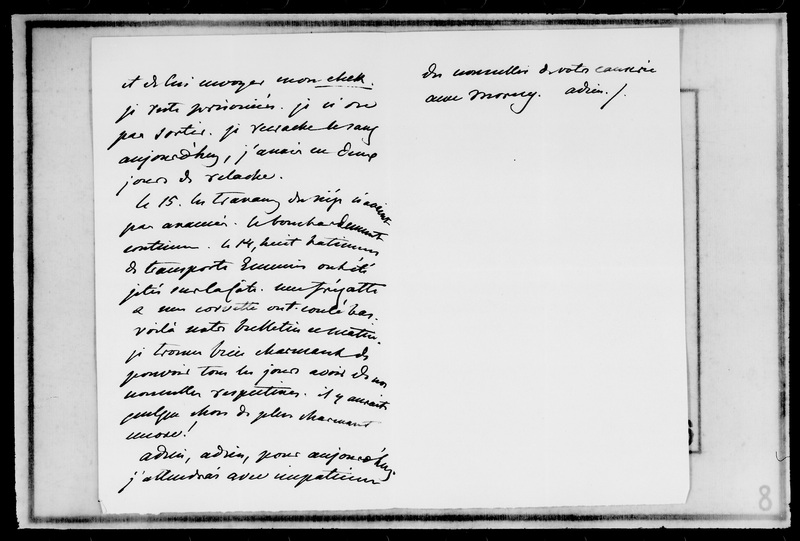 et de lui envoyer mon chek.
je reste prisonnier. je n'ose
pas sortir. je recrache le sang
aujourd'huy, j'avais eu deux
jours de relache.
le 15. les travaux du siége n'avaient
pas avancés. le bombardement
continue. le 14, huit batimens
de transports Ennemis ont été
jetés sur la côte. une frégatte
a une corvette ont coulé bas.
voilà notre bulletin ce matin.
je trouve bien charmant de
pouvoir tous les jours avoir de nos
nouvelles respectives. il y aurait
quelque chose de plus charmant
encore!
adieu, adieu, pour aujourd'huy
j'attendrai avec impatience
des nouvelles de votre causerie
avec Morny. adieu./.
8